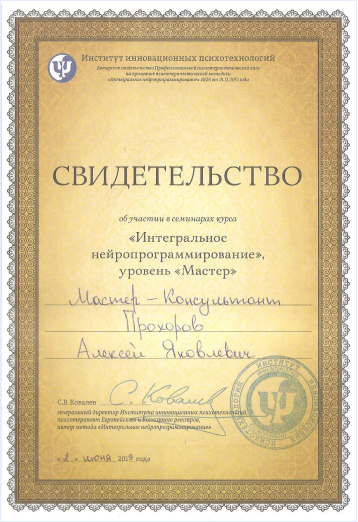 Институт инновационных психотехнологий
Авторское свидетельство Профессиональной психотерапевтической лиги
на признание психотерапевтической методики
«СВИДЕТЕЛЬСТВО
об участии в семинарах курса
«Интегральное
нейропрограммирование»,
уровень «Мастер»
Мастер – Консультант
Прохоров
Алексей Яковлевич
С.В. Ковалев
генеральный директор Института инновационных психотехнологий,
психотерапевт Европейского и Всемирного реестров,
автор метода «Интегральное нейропрограммирование»
«2» июня 2019 года
ИНСТИТУТ